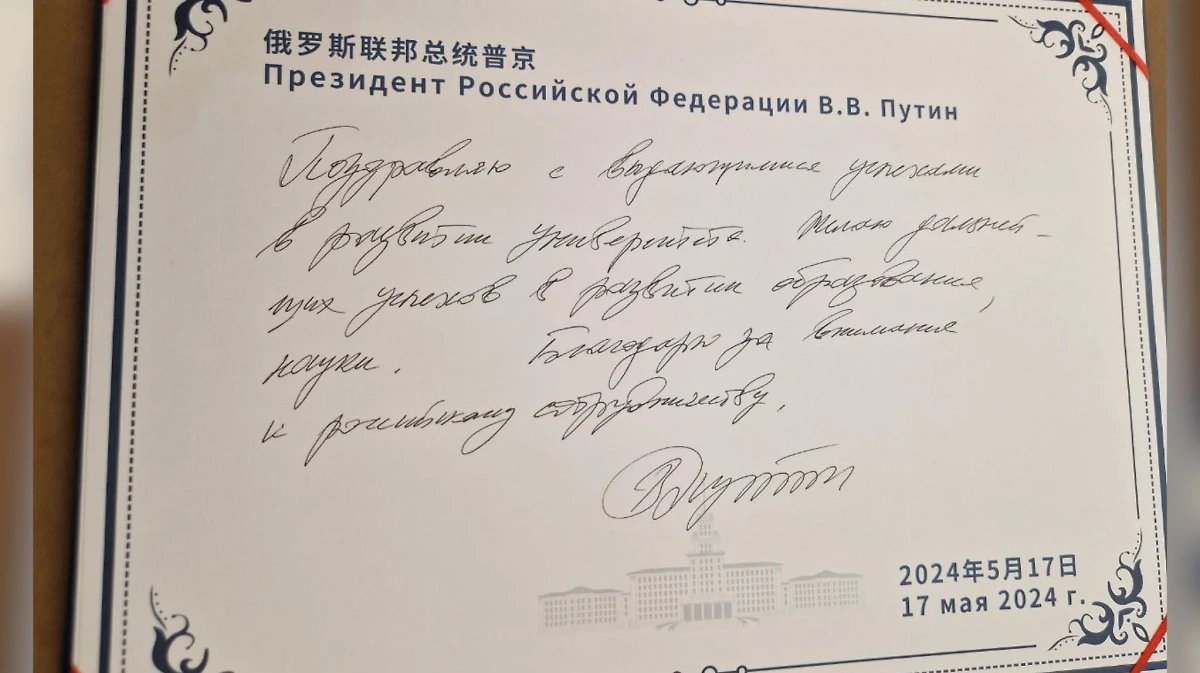 俄罗斯联邦总统普京
Президент Российской Федерации В.В. Путин
Поздравляю с выдающимися успехами
в развитии университета. Желаю дальней-
ших успехов в развитии образования,
науки. Благодарю за внимание
к российскому сотрудничеству.
ВПутин
2024年5月17日
17 мая 2024 г.